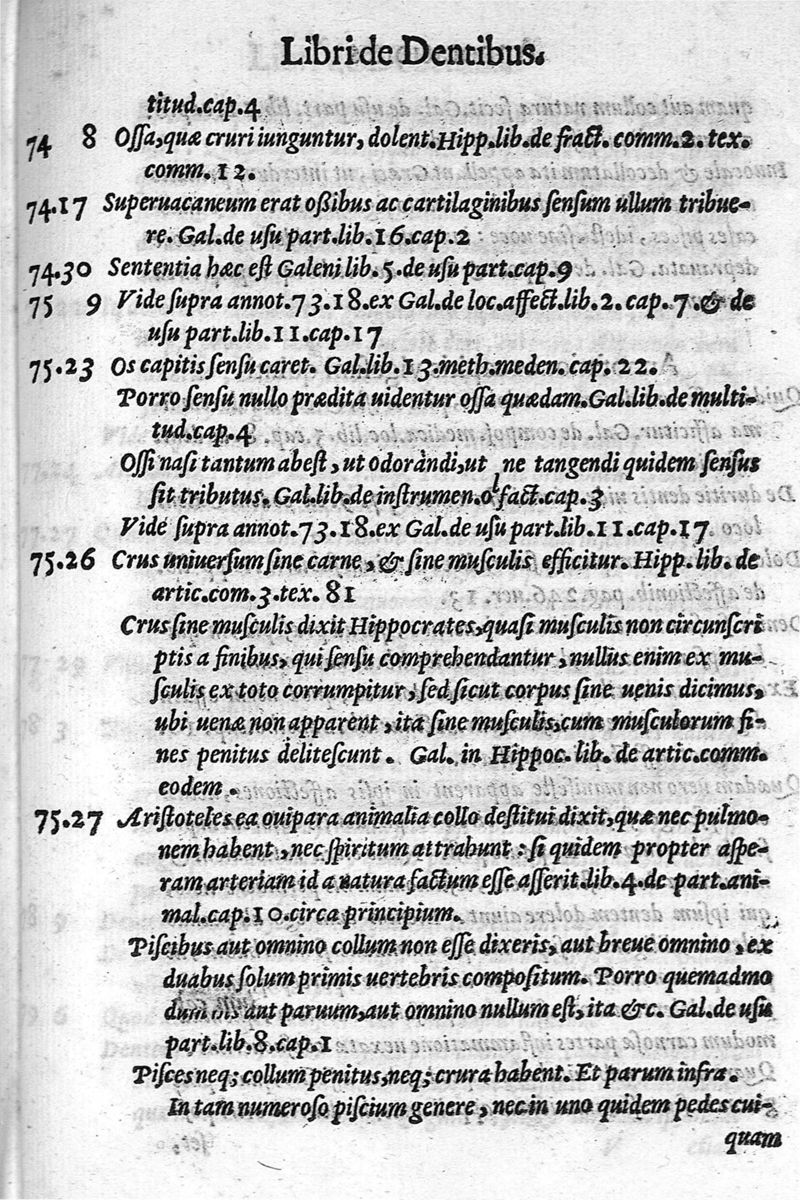 Libri de Dentibus.
titud.cap.4
74 8 Oſſa, quæ cruri iunguntur, dolent. Hipp.lib.de fract. comm.2. tex.
comm.12.
74.17 Superuacaneum erat oßibus ac cartilaginibus ſenſum ullum tribue-
re. Gal.de uſu part.lib.16.cap.2
74.30 Sententia hæc eſt Galeni lib.5.de uſu part.cap.9
75 9 Vide ſupra annot.73.18.ex Gal.de loc.affect.lib.2. cap.7.& de
uſu part.lib.11.cap.17
75.23 Os capitis ſenſu caret. Gal.lib.13.meth.meden.cap.22.
Porro ſenſu nullo prædita uidentur oſſa quædam.Gal.lib.de multi-
tud.cap.4
Oſſi naſi tantum abeſt, ut odorandi, ut ne tangendi quidem ſenſus
ſit tributus. Gal.lib.de inſtrumen.olfact.cap.3
Vide ſupra annot.73.18.ex Gal.de uſu part.lib.11.cap.17
75.26 Crus uniuerſum ſine carne, & ſine muſculis efficitur. Hipp. lib. de
artic.com.3.tex. 81
Crus ſine muſculis dixit Hippocrates, quaſi muſculis non circunſcri
ptis a finibus, qui ſenſu comprehendantur, nullus enim ex mu-
ſculis ex toto corrumpitur, ſed ſicut corpus ſine uenis dicimus,
ubi uenæ non apparent, ita ſine muſculis, cum muſculorum fi-
nes penitus deliteſcunt. Gal. in Hippoc. lib. de artic.comm.
eodem.
75.27 Ariſtoteles ea ouipara animalia collo deſtitui dixit, quæ nec pulmo-
nem habent, nec ſpiritum attrahunt: ſi quidem propter aſpe-
ram arteriam id a natura factum eſſe aſſerit.lib.4.de part.ani-
mal.cap.10.circa principium.
Piſcibus aut omnino collum non eſſe dixeris, aut breue omnino, ex
duabus ſolum primis uertebris compoſitum. Porro quemadmo
dum his aut paruum, aut omnino nullum eſt, ita &c. Gal.de uſu
part.lib.8.cap.1
Piſces neq; collum penitus, neq; crura habent. Et parum infra.
In tam numeroſo piſcium genere, nec in uno quidem pedes cui-
quam